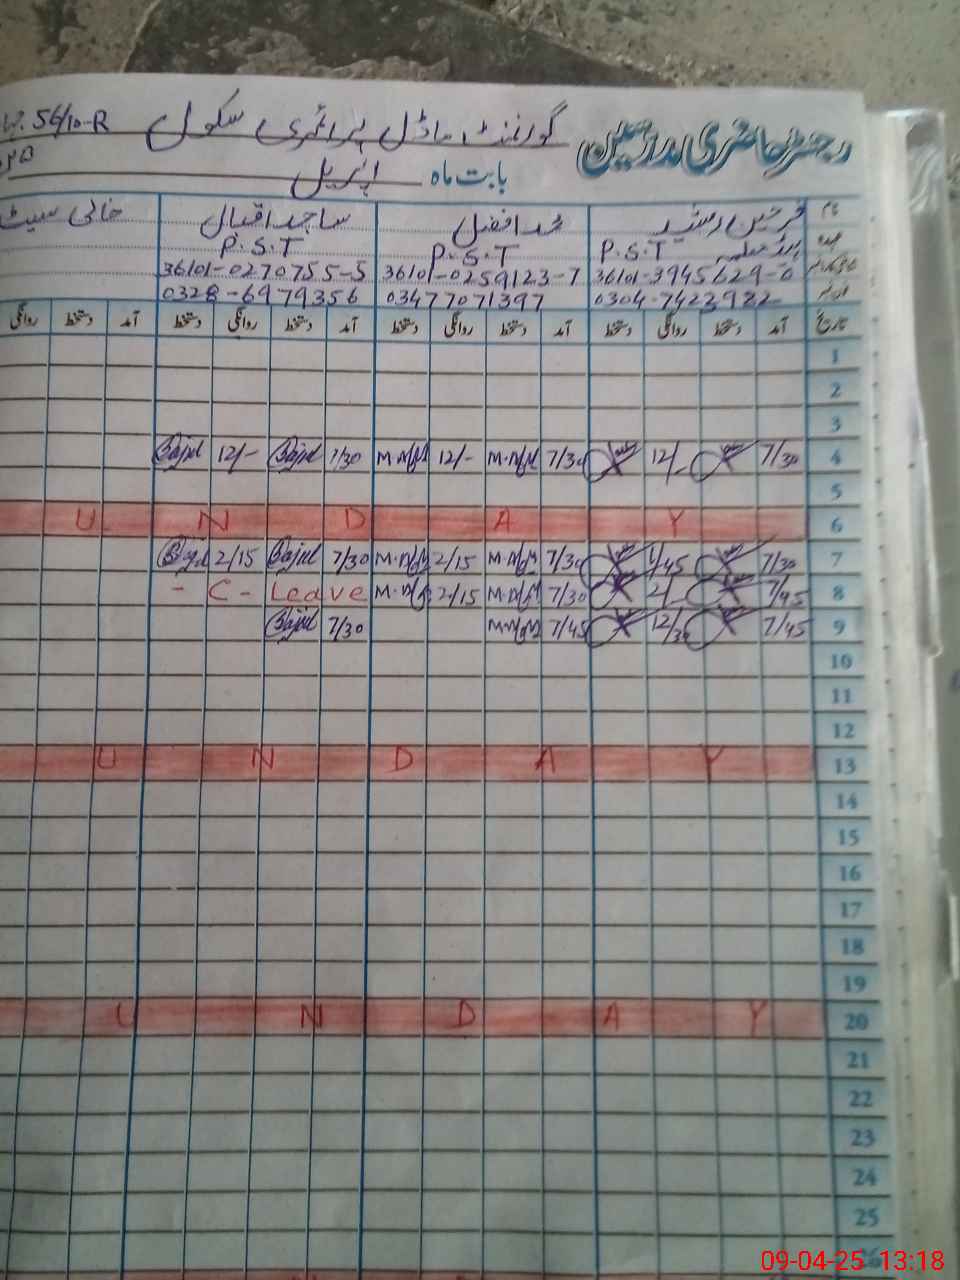 رجسٹر حاضری مدرسین گورنمنٹ ماڈل پرائمری سکول 56/10-R
بابت ماہ اپریل
نام فرحین رشید محمد افضل ساجد اقبال خالی سیٹ
عہدہ P.S.T P.S.T P.S.T
36101-3945629-0 36101-0259123-7 36101-0270755-5
0304-7423982 03477071397 0328-6979356
تاریخ آمد دستخط روانگی دستخط آمد دستخط روانگی دستخط آمد دستخط روانگی دستخط آمد دستخط روانگی
1
2
3
4 7/30 12/- 7/30 12/- 7/30 12/-
5
6 U N D A Y
7 7/30 1/45 7/30 2/15 7/30 2/15
8 7/45 2/- 7/30 2/15 - C - Leave
9 7/45 12/30 7/45 7/30
10
11
12
13 U N D A Y
14
15
16
17
18
19
20 U N D A Y
21
22
23
24
25
26
09-04-25 13:18